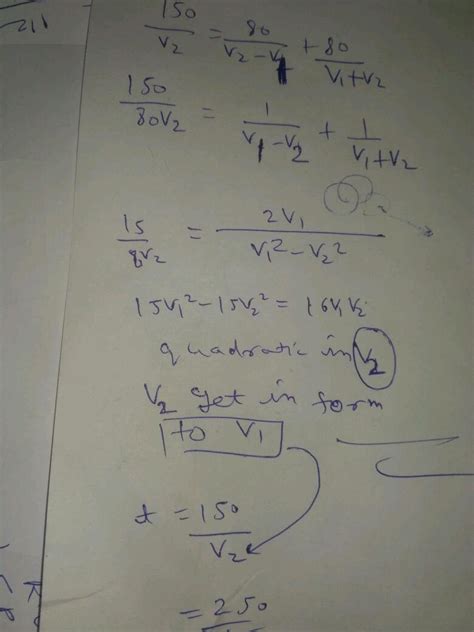 150/V2 = 80/(V2-V1) + 80/(V1+V2)
150/80V2 = 1/(V1-V2) + 1/(V1+V2)
15/8V2 = 2V1/(V1²-V2²)
15V1²-15V2² = 16V1V2
quadratic in V2
V2 get in form
to V1
t = 150/V2
= 250